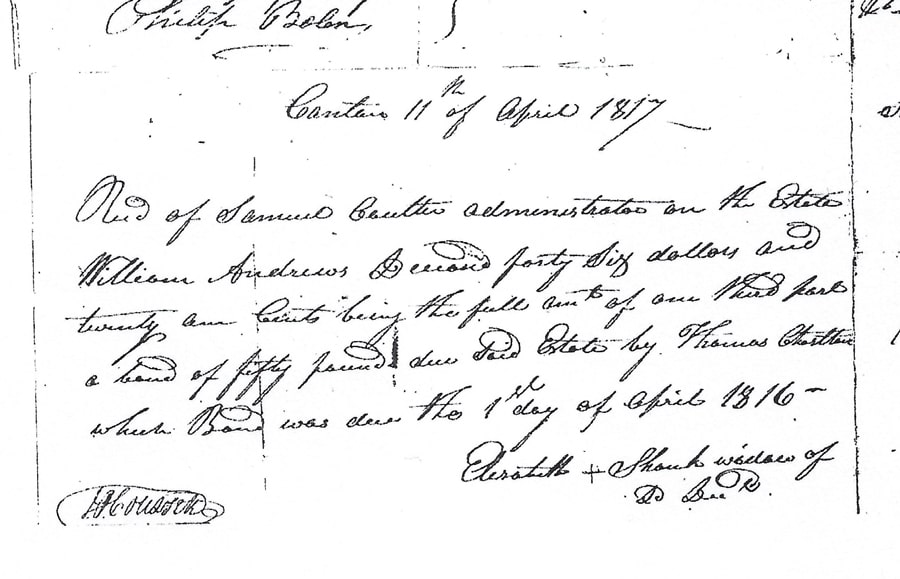 Philip Bolen,
Canton 11th of April 1817
Recd of Samuel Coulter administrator on the Estate
William Andrews Deceasd forty Six dollars and
twenty one Cents being the full amt of one third part
a bond of fifty pounds due Said Estate by Thomas Charlton
which Bond was due the 1st day of April 1816 –
Elizabeth + Shank widow of
Sd Decd